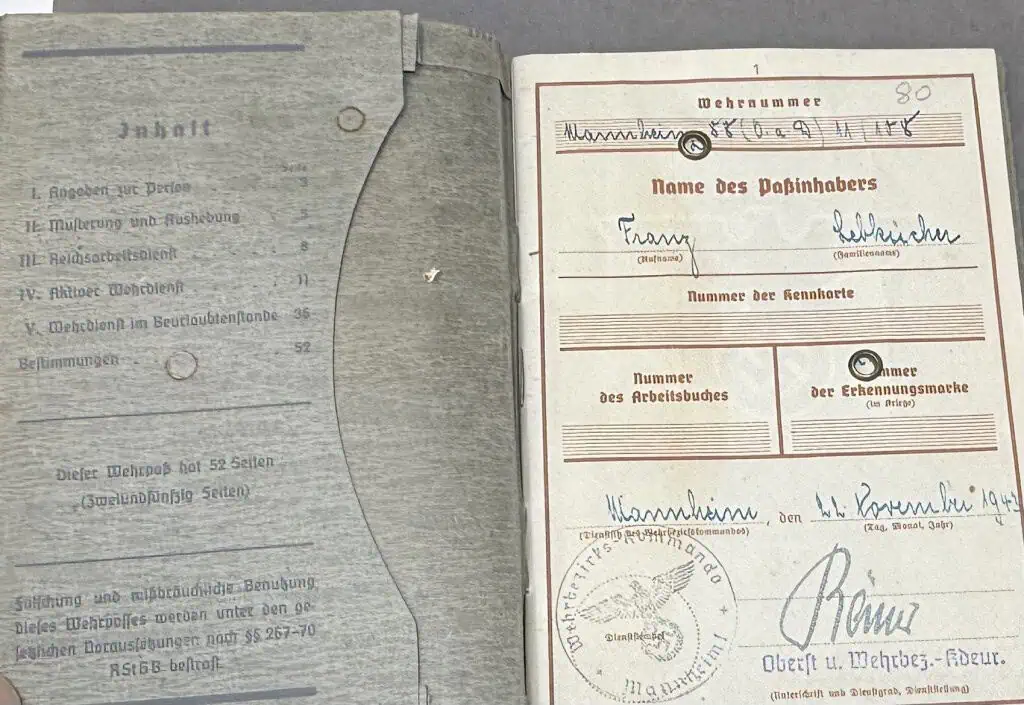 Inhalt
Seite
I. Angaben zur Person 3
II. Musterung und Aushebung 5
III. Reichsarbeitsdienst 8
IV. Aktiver Wehrdienst 11
V. Wehrdienst im Beurlaubtenstande 36
Bestimmungen 52
Dieser Wehrpaß hat 52 Seiten
(Zweiundfünfzig Seiten)
Fälschung und mißbräuchliche Benutzung
dieses Wehrpasses werden unter den ge-
setzlichen Voraussetzungen nach §§ 267-70
RStGB bestraft
1
80
Wehrnummer
Mannheim
Name des Paßinhabers
Franz Lebkücher
(Rufname) (Familienname)
Nummer der Kennkarte
Nummer
des Arbeitsbuches
der Erkennungsmarke
(im Kriege)
Mannheim, den 22. November
(Dienstsitz des Wehrbezirkskommandos) (Tag, Monat, Jahr)
Wehrbezirks-Kommando
Dienststempel
Mannheim 1
Oberst u. Wehrbez.-Kdeur.
(Unterschrift und Dienstgrad, Dienststellung)